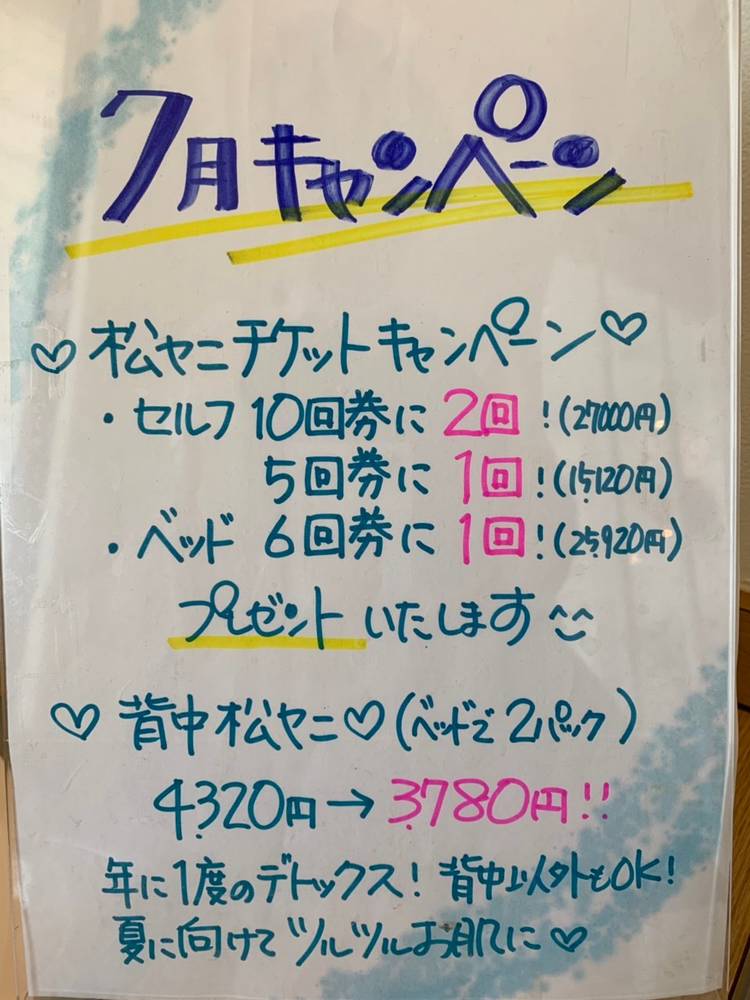 7月キャンペーン
♡松ヤニチケットキャンペーン♡
・セルフ 10回券に 2回！(27000円)
5回券に 1回！(15,120円)
・ベッド 6回券に 1回！(25,920円)
プレゼントいたします^^
♡背中松ヤニ♡(ベッドで2パック)
4,320円→3,780円!!
年に1度のデトックス！背中以外もOK！
夏に向けてツルツルお肌に♡